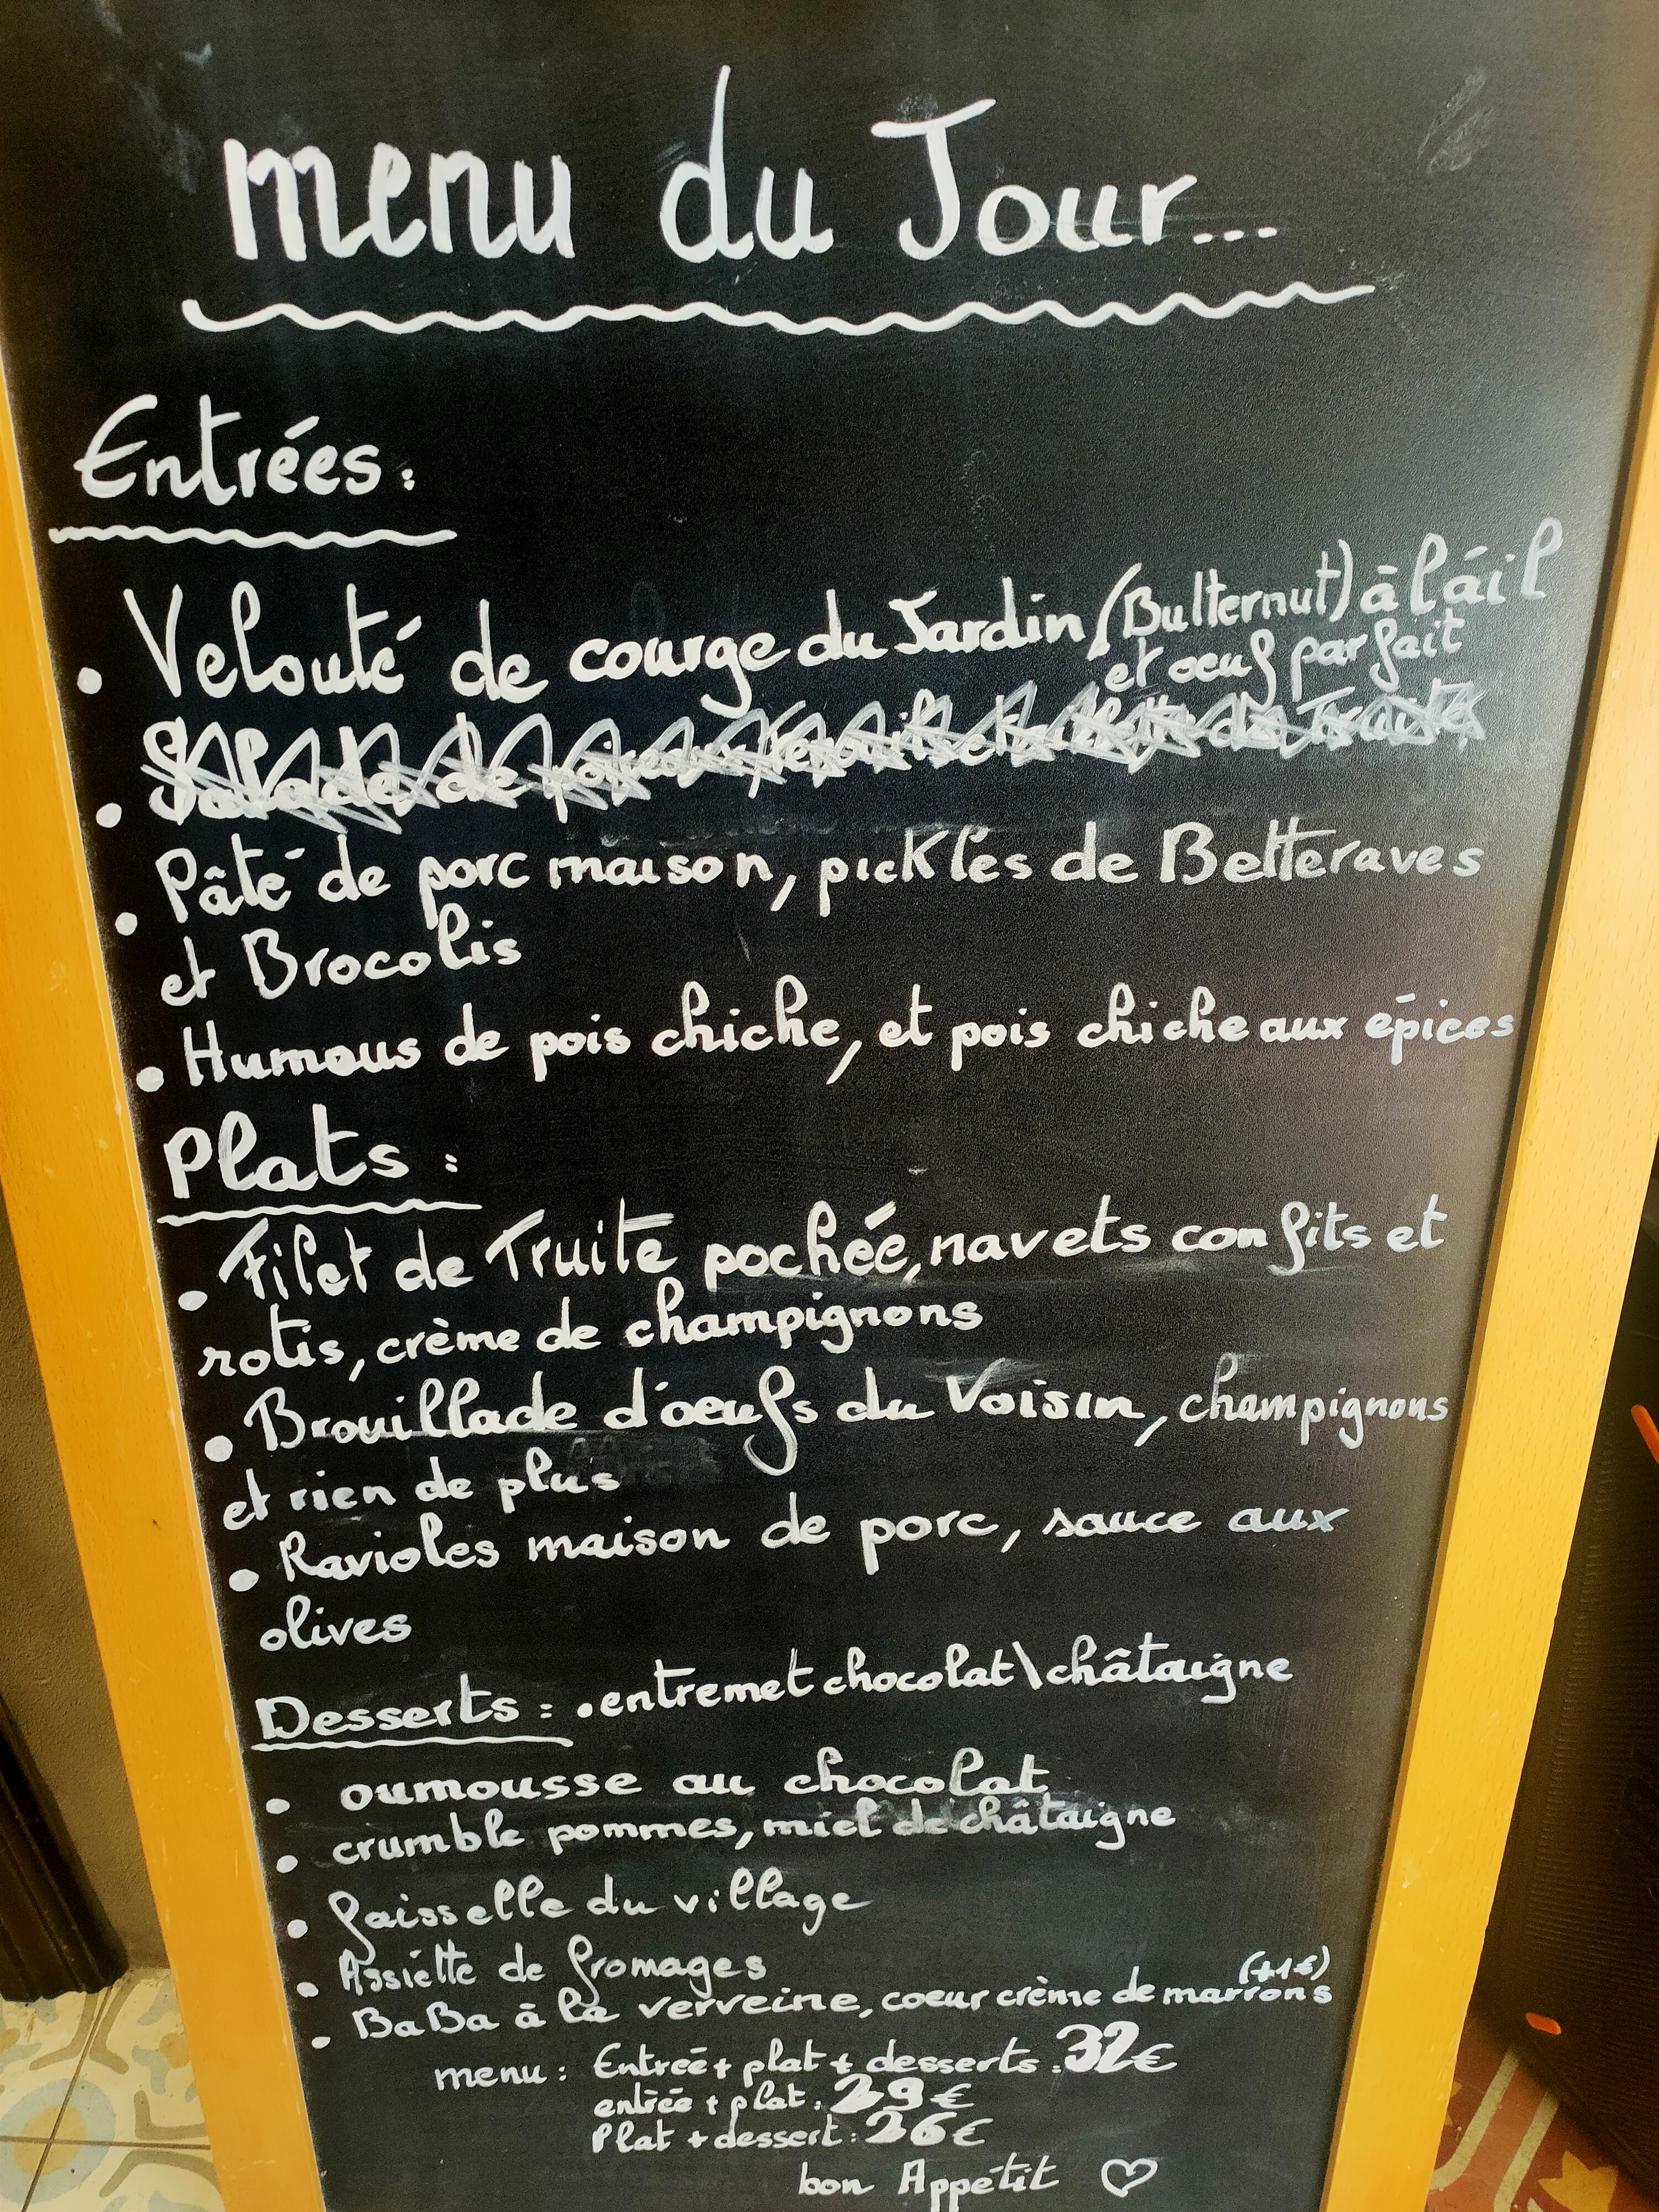 menu du Jour...
Entrées:
• Velouté de courge du Jardin (Butternut) à l'áil
et oeuf parfait
• Salade de poireaux, fenouil et de Truite
• Pâté de porc maison, pickles de Betteraves
et Brocolis
• Humous de pois chiche, et pois chiche aux épices
Plats :
• Filet de Truite pochée, navets confits et
rotis, crème de champignons
• Brouillade d'oeufs du Voisin, champignons
et rien de plus
• Ravioles maison de porc, sauce aux
olives
Desserts : • entremet chocolat\châtaigne
• oumousse au chocolat
• crumble pommes, miel de châtaigne
• faisselle du village
• Assiette de fromages
(+1€)
• BaBa à la verveine, coeur crème de marrons
menu : Entreé + plat + desserts : 32€
entrée + plat : 29€
Plat + dessert : 26€
bon Appétit ♡